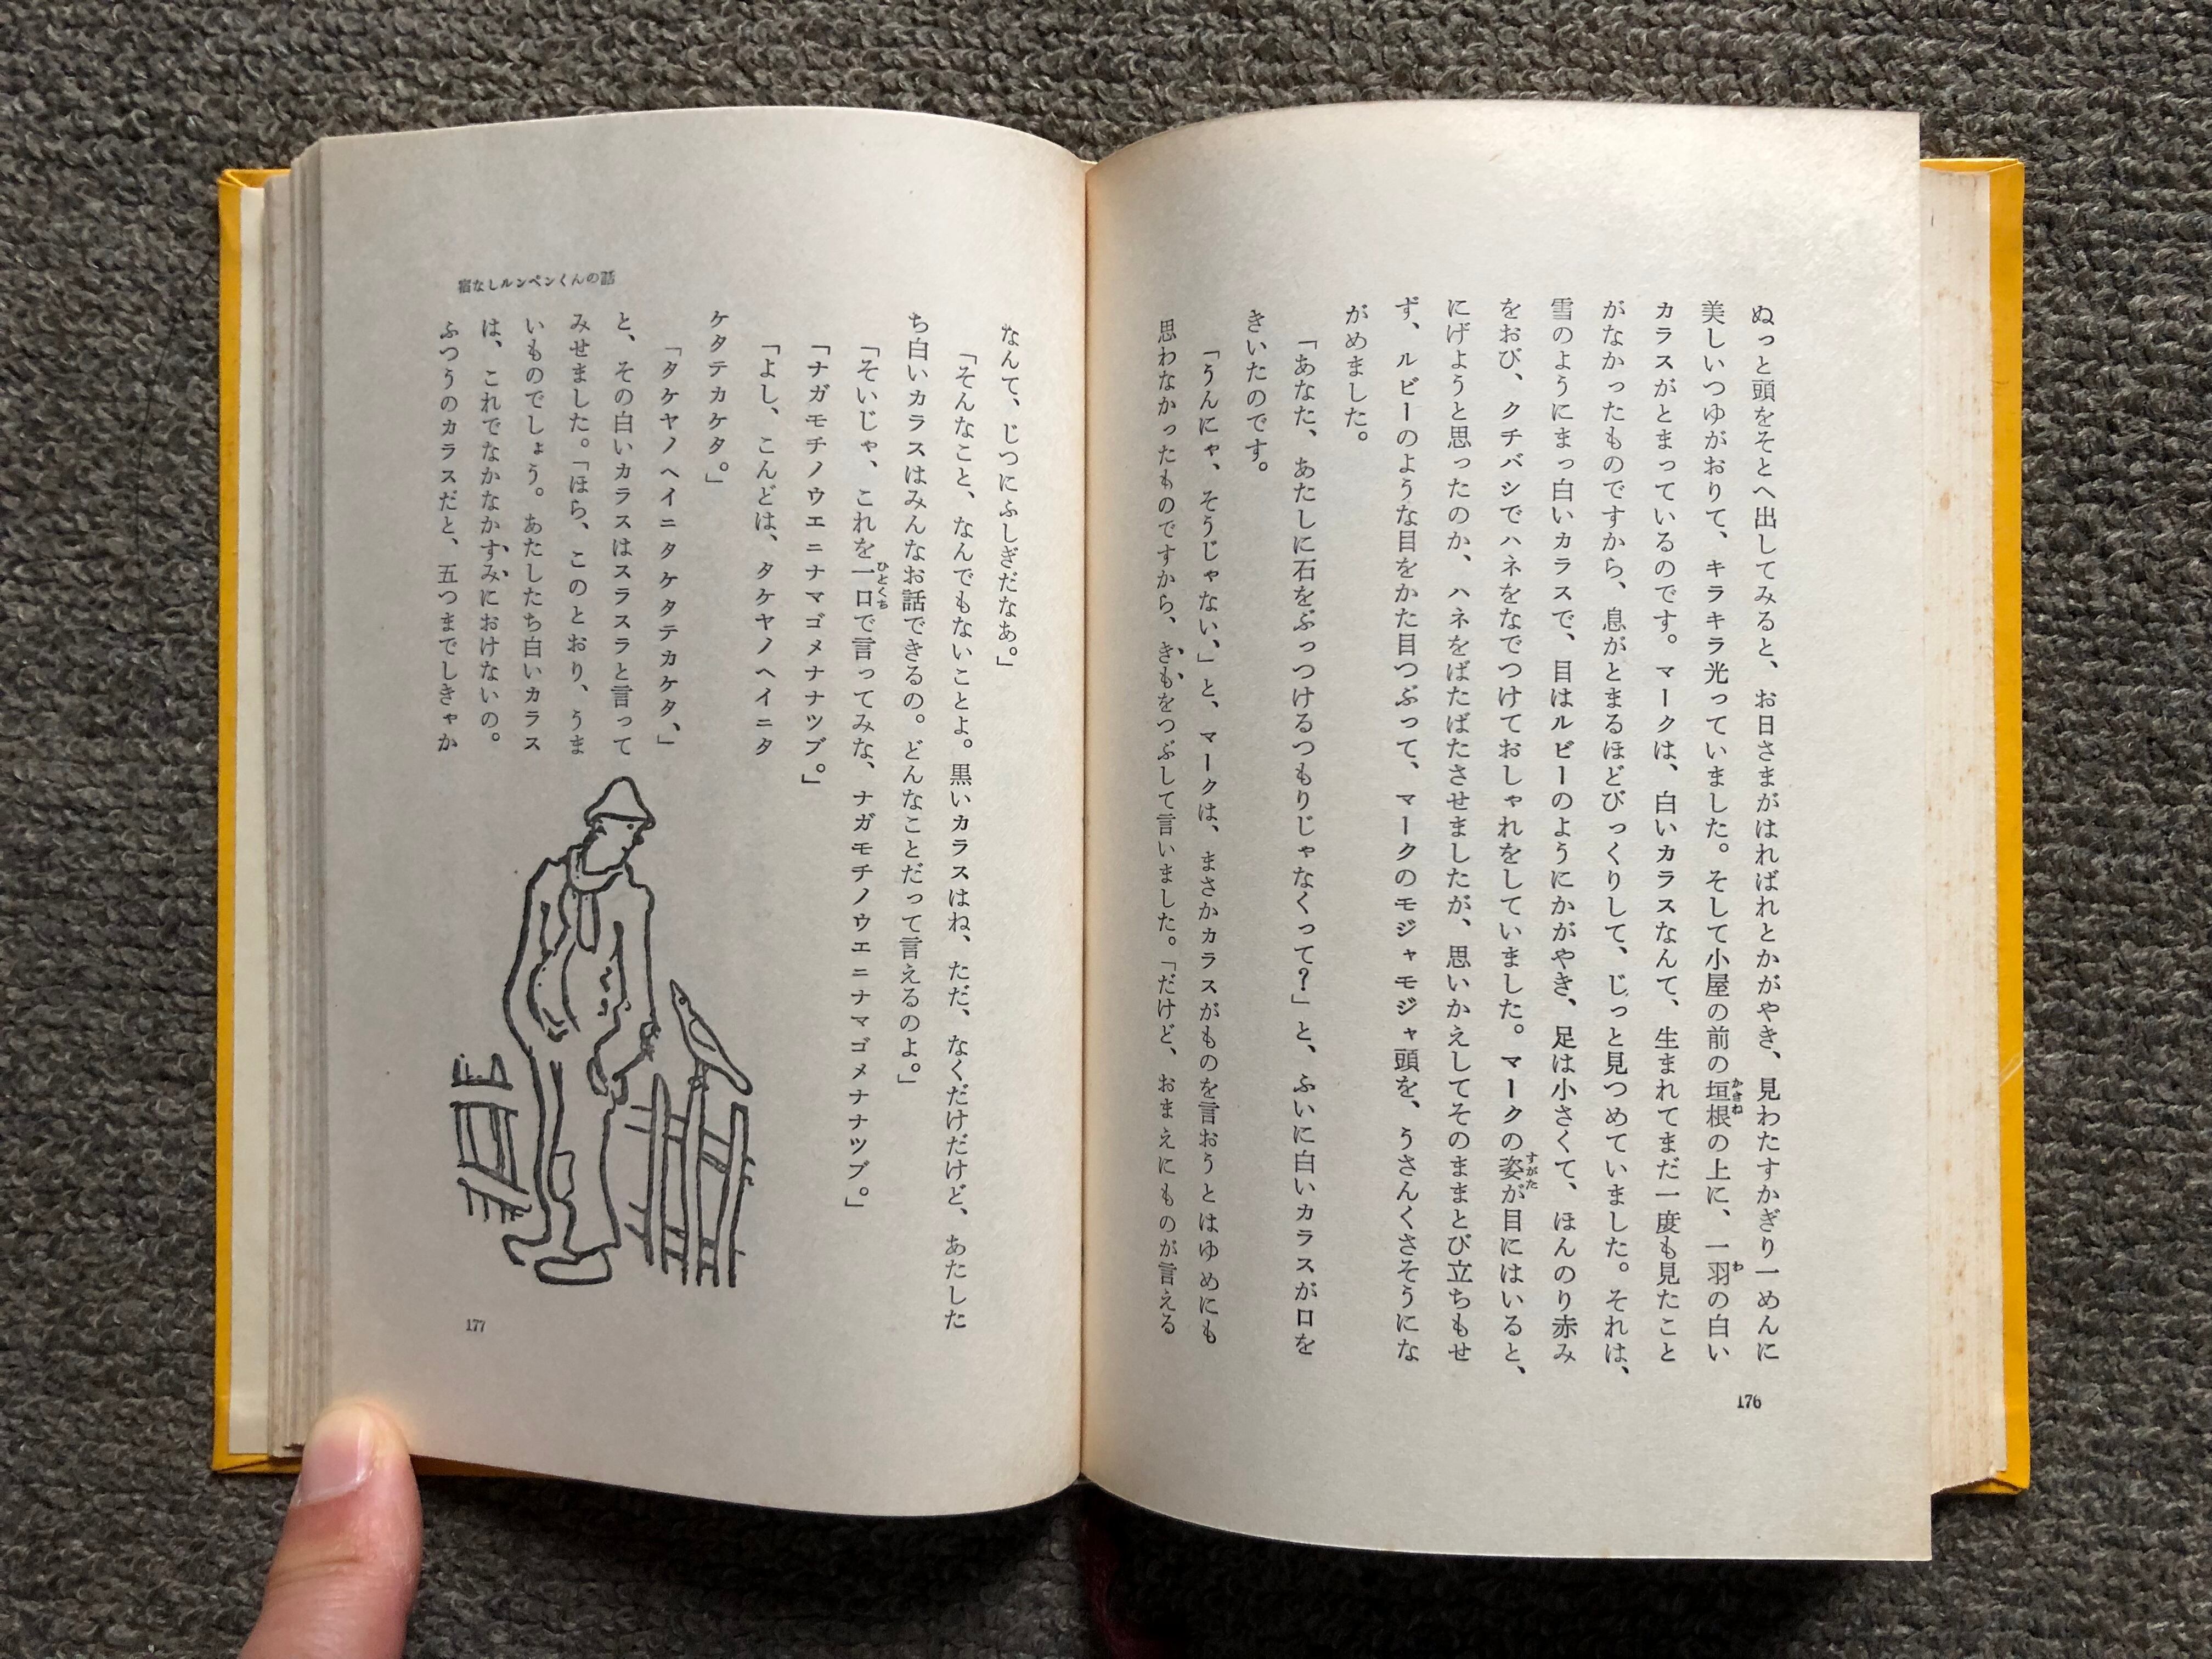 ぬっと頭をそとへ出してみると、お日さまがはればれとかがやき、見わたすかぎり一めんに
美しいつゆがおりて、キラキラ光っていました。そして小屋の前の垣根の上に、一羽の白い
カラスがとまっているのです。マークは、白いカラスなんて、生まれてまだ一度も見たこと
がなかったものですから、息がとまるほどびっくりして、じっと見つめていました。それは、
雪のようにまっ白いカラスで、目はルビーのようにかがやき、足は小さくて、ほんのり赤み
をおび、クチバシでハネをなでつけておしゃれをしていました。マークの姿が目にはいると、
にげようと思ったのか、ハネをばたばたさせましたが、思いかえしてそのままとび立ちもせ
ず、ルビーのような目をかた目つぶって、マークのモジャモジャ頭を、うさんくさそうにな
がめました。
「あなた、あたしに石をぶっつけるつもりじゃなくって?」と、ふいに白いカラスが口を
きいたのです。
「うんにゃ、そうじゃない、」と、マークは、まさかカラスがものを言おうとはゆめにも
思わなかったものですから、きもをつぶして言いました。「だけど、おまえにものが言える
176
なんて、じつにふしぎだなあ。」
「そんなこと、なんでもないことよ。黒いカラスはね、ただ、なくだけだけど、あたした
ち白いカラスはみんなお話できるの。どんなことだって言えるのよ。」
「そいじゃ、これを一口で言ってみな、ナガモチノウエニナマゴメナナツブ。」
「ナガモチノウエニナマゴメナナツブ。」
「よし、こんどは、タケヤノヘイニタ
ケタテカケタ。」
「タケヤノヘイニタケタテカケタ、」
と、その白いカラスはスラスラと言って
みせました。「ほら、このとおり、うま
いものでしょう。あたしたち白いカラス
は、これでなかなかすみにおけないの。
ふつうのカラスだと、五つまでしきゃか
宿なしルンペンくんの話
177